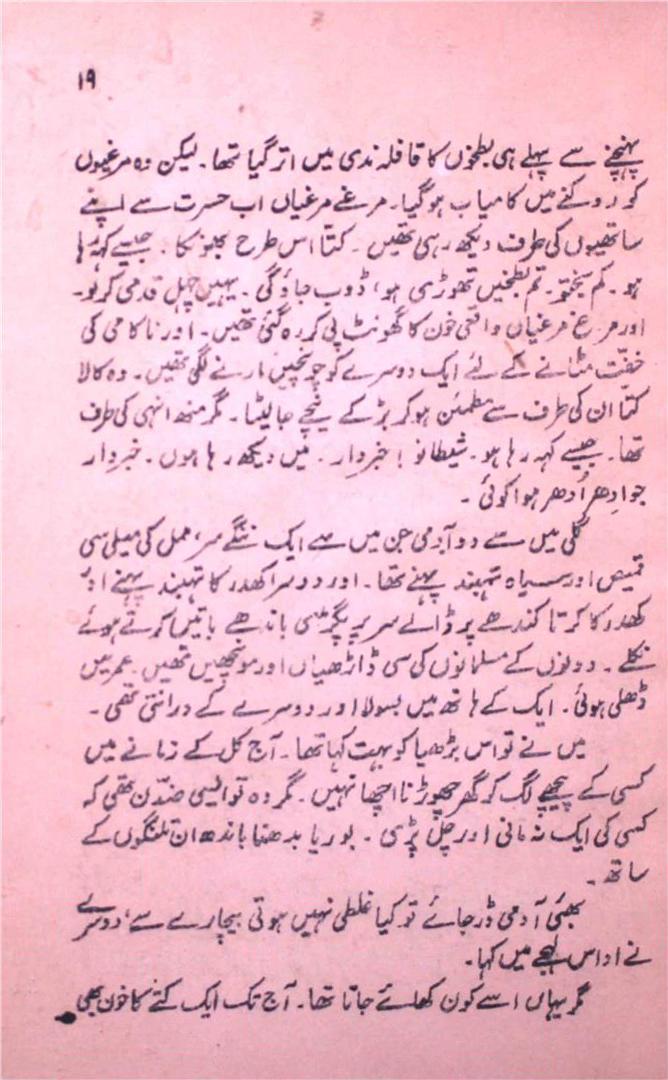 ۱۹
پہنچنے سے پہلے ہی بطخوں کا قافلہ ندی میں اتر گیا تھا۔ لیکن وہ مرغیوں
کو روکنے میں کامیاب ہوگیا۔ مرغے مرغیاں اب حسرت سے اپنے
ساتھیوں کی طرف دیکھ رہی تھیں۔ کتا اس طرح بھونکا۔ جیسے کہہ رہا
ہو۔ کم بختو۔ تم بطخیں تھوڑی ہو، ڈوب جاؤ گی۔ یہیں چہل قدمی کر لو۔
اور مرغ مرغیاں واقعی خون کا گھونٹ پی کر رہ گئی تھیں۔ اور ناکامی کی
خفّت مٹانے کے لئے ایک دوسرے کو چونچیں مارنے لگی تھیں۔ وہ کالا
کتّا ان کی طرف سے مطمئن ہو کر بڑ کے نیچے جا لیٹا۔ مگر منھ انہی کی طرف
تھا۔ جیسے کہہ رہا ہو۔ شیطانو! خبردار۔ میں دیکھ رہا ہوں۔ خبردار
جو اِدھر اُدھر ہوا کوئی۔
گلی میں سے دو آدمی جن میں سے ایک ننگے سر، ململ کی میلی سی
قمیص اور سیاہ تہبند پہنے تھا۔ اور دوسرا کھدر کا تہبند پہنے اور
کھدر کا کرتا کندھے پر ڈالے سر پر پگڑی سی باندھے باتیں کرتے ہوئے
نکلے۔ دونوں کے مسلمانوں کی سی ڈاڑھیاں اور مونچھیں تھیں۔ عمریں
ڈھلی ہوئی۔ ایک کے ہاتھ میں بسولا اور دوسرے کے درانتی تھی۔
میں نے تو اس بڑھیا کو بہت کہا تھا۔ آج کل کے زمانے میں
کسی کے پیچھے لگ کر گھر چھوڑنا اچھا نہیں۔ مگر وہ تو ایسی ضدّن تھی کہ
کسی کی ایک نہ مانی اور چل پڑی۔ بوریا بدھنا باندھ ان تلنگوں کے
ساتھ۔
بھئی آدمی ڈر جائے تو کیا غلطی نہیں ہوتی بیچارے سے، دوسرے
نے اداس لہجے میں کہا۔
مگر یہاں اسے کون کھائے جاتا تھا۔ آج تک ایک کتے کا خون بھی